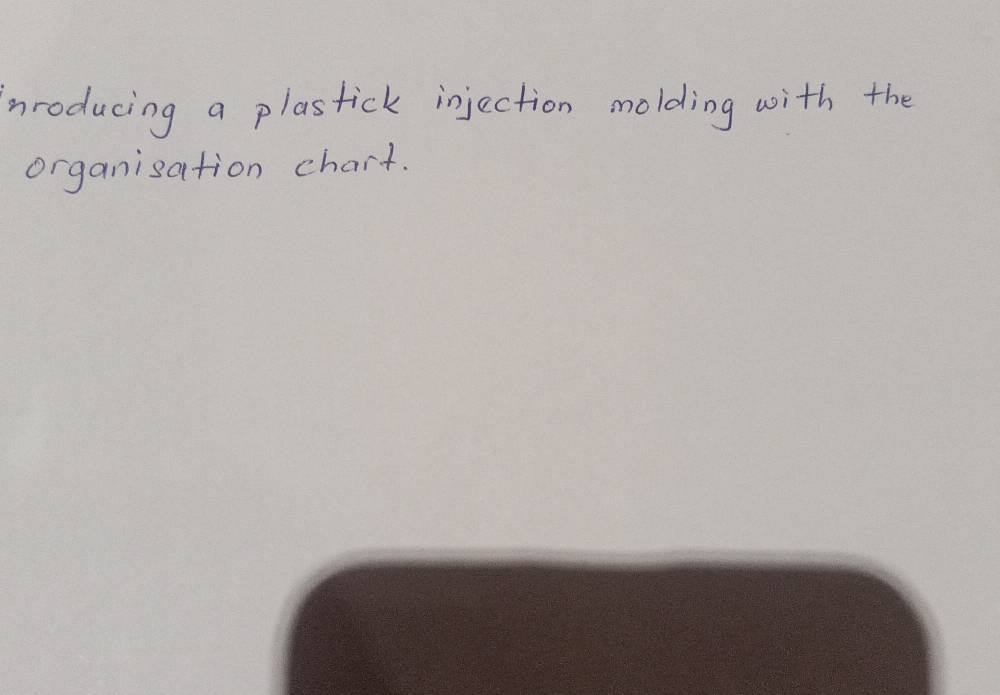 inroducing a plastick injection molding with the
organisation chart.